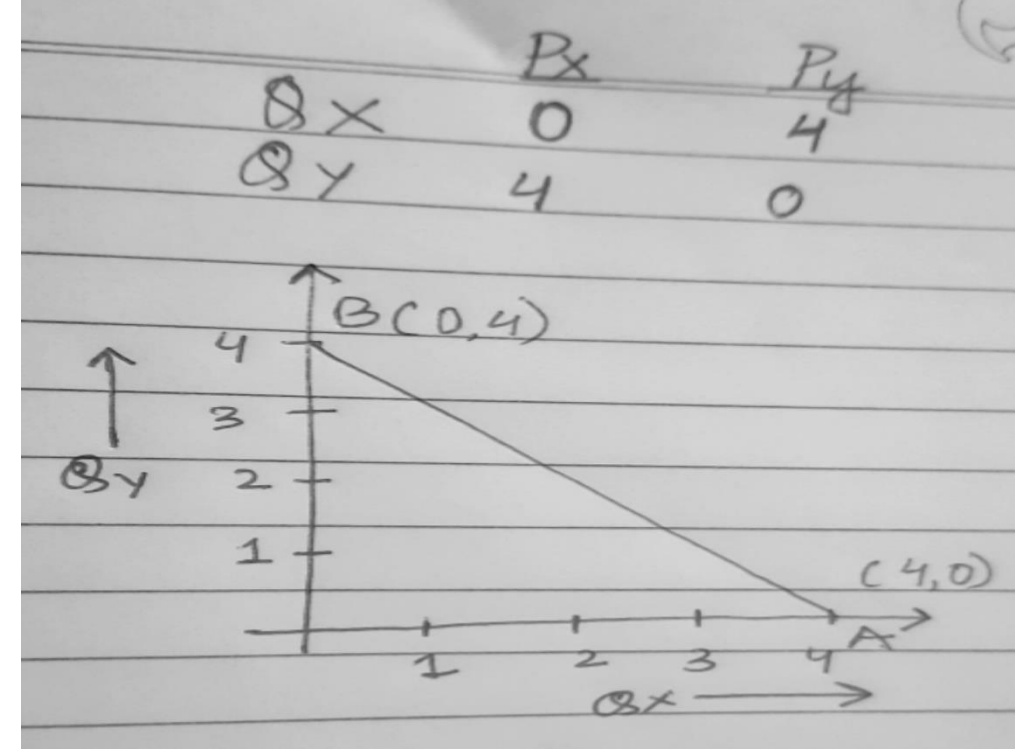 Px Py
QX 0 4
QY 4 0
B(0,4)
4
3
QY 2
1
(4,0)
A
1 2 3 4
QX